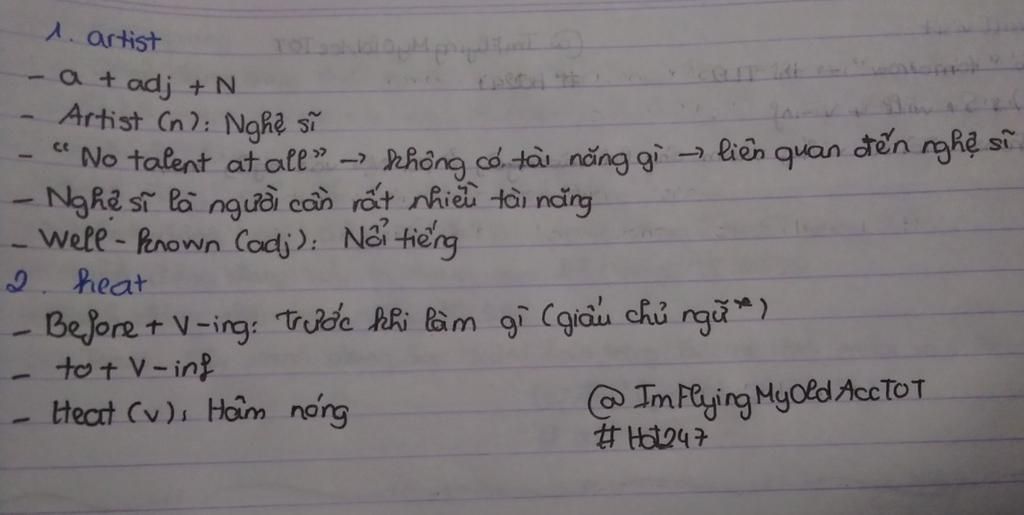 1. artist
- a + adj + N
- Artist (n): Nghệ sĩ
- "No talent at all" → không có tài năng gì → liên quan đến nghệ sĩ
- Nghệ sĩ là người cần rất nhiều tài năng
- Well-known (adj): Nổi tiếng
2. heat
- Before + V-ing: trước khi làm gì (giấu chủ ngữ**)
- to + V-inf
- Heat (v): Hâm nóng
@ImFlyingMyOldAccTOT
#Hoi247